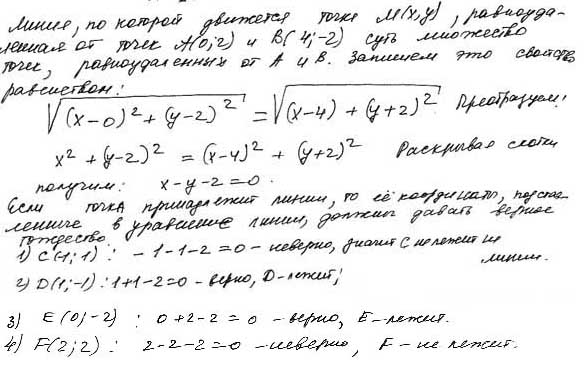 Линия, по которой движется точка M(x,y), равноуда-
ленная от точек A(0;2) и B(4;-2) суть множество
точек, равноудаленных от A и B. Запишем это свойство
равенством:
√((x-0)² + (y-2)²) = √((x-4) + (y+2)²) Преобразуем:
x² + (y-2)² = (x-4)² + (y+2)² Раскрывая скобки
получим: x-y-2=0.
Если точка принадлежит линии, то её координаты, подстав-
ленные в уравнение линии, должны давать верное
тождество.
1) C(-1;1): -1-1-2=0 - неверно, значит C не лежит на
линии.
2) D(1;-1): 1+1-2=0 - верно, D-лежит;
3) E(0;-2) : 0+2-2=0 - верно, E-лежит.
4) F(2;2) : 2-2-2=0 - неверно, F - не лежит.